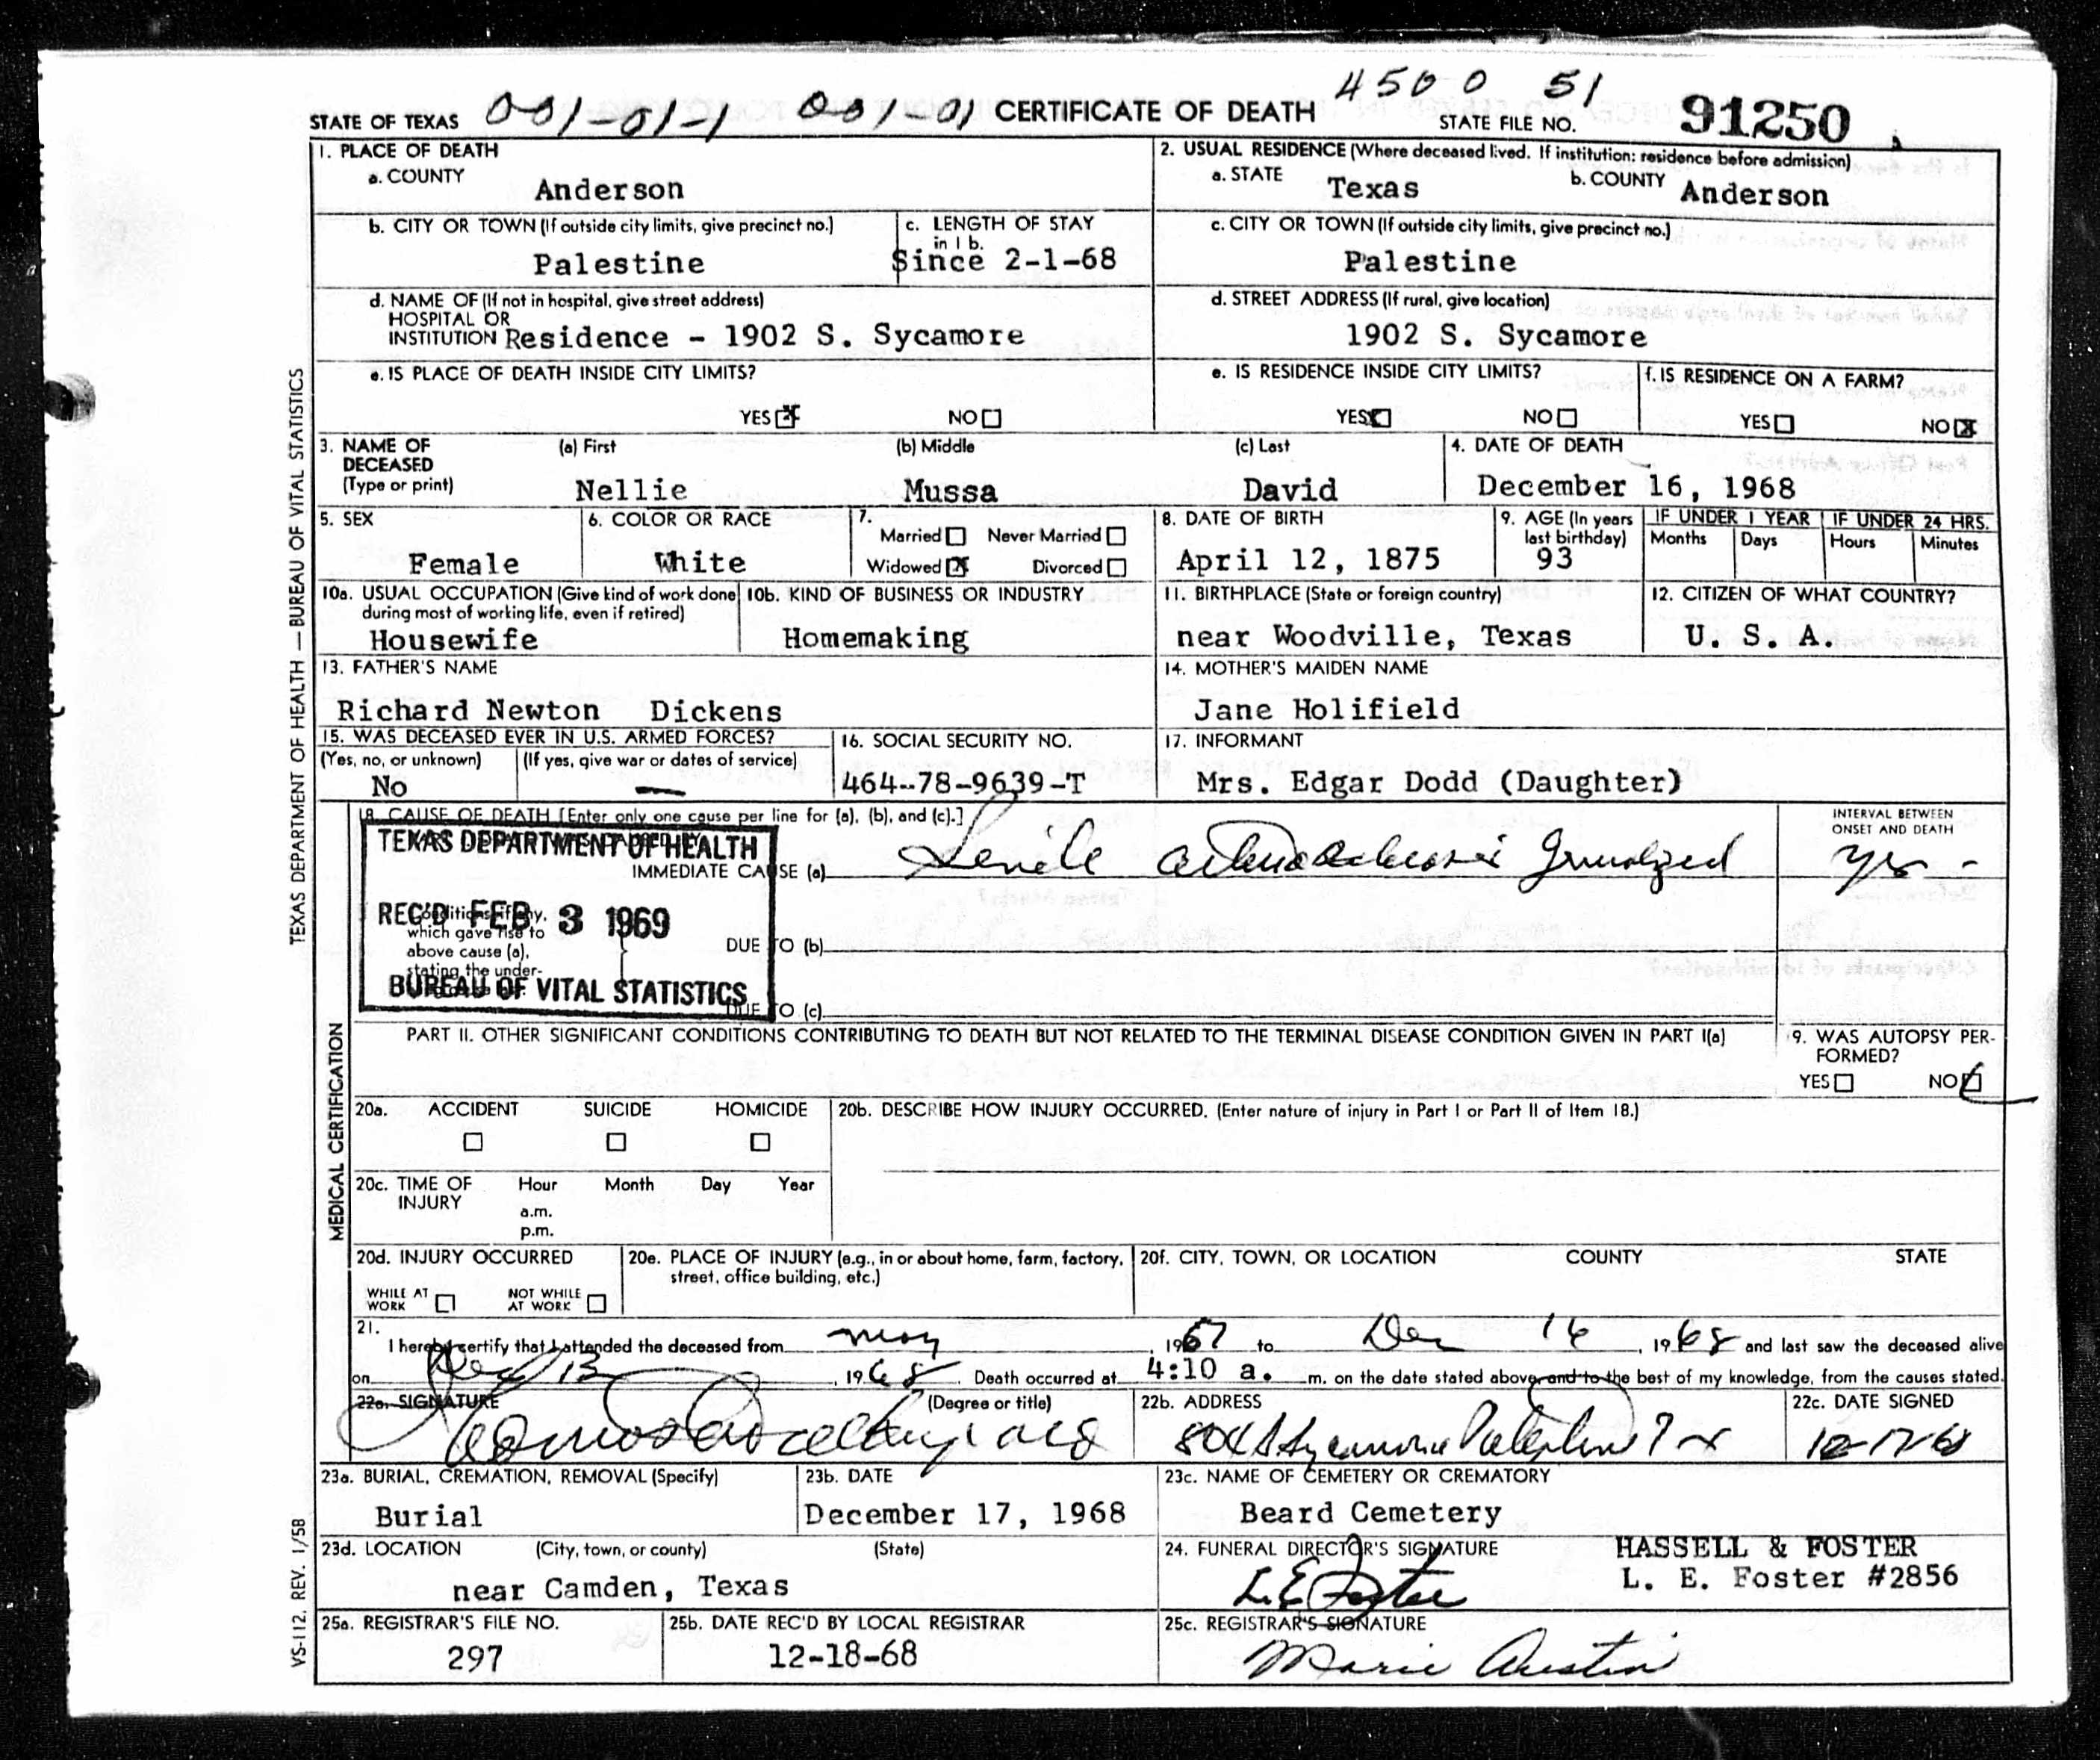 001-01-1 001-01 4500 51
STATE OF TEXAS CERTIFICATE OF DEATH STATE FILE NO. 91250
1. PLACE OF DEATH
a. COUNTY
Anderson
2. USUAL RESIDENCE (Where deceased lived. If institution: residence before admission)
a. STATE Texas b. COUNTY Anderson
b. CITY OR TOWN (If outside city limits, give precinct no.)
Palestine
c. LENGTH OF STAY
in 1 b.
Since 2-1-68
c. CITY OR TOWN (If outside city limits, give precinct no.)
Palestine
d. NAME OF (If not in hospital, give street address)
HOSPITAL OR
INSTITUTION Residence - 1902 S. Sycamore
d. STREET ADDRESS (If rural, give location)
1902 S. Sycamore
e. IS PLACE OF DEATH INSIDE CITY LIMITS?
YES X NO
e. IS RESIDENCE INSIDE CITY LIMITS?
YES X NO
f. IS RESIDENCE ON A FARM?
YES NO X
3. NAME OF DECEASED (Type or print)
(a) First (b) Middle (c) Last
Nellie Mussa David
4. DATE OF DEATH
December 16, 1968
5. SEX
Female
6. COLOR OR RACE
White
7.
Married Never Married
Widowed X Divorced
8. DATE OF BIRTH
April 12, 1875
9. AGE (In years last birthday)
93
IF UNDER 1 YEAR IF UNDER 24 HRS.
Months Days Hours Minutes
10a. USUAL OCCUPATION (Give kind of work done during most of working life, even if retired)
Housewife
10b. KIND OF BUSINESS OR INDUSTRY
Homemaking
11. BIRTHPLACE (State or foreign country)
near Woodville, Texas
12. CITIZEN OF WHAT COUNTRY?
U. S. A.
13. FATHER'S NAME
Richard Newton Dickens
14. MOTHER'S MAIDEN NAME
Jane Holifield
15. WAS DECEASED EVER IN U.S. ARMED FORCES?
(Yes, no, or unknown) (If yes, give war or dates of service)
No —
16. SOCIAL SECURITY NO.
464-78-9639-T
17. INFORMANT
Mrs. Edgar Dodd (Daughter)
18. CAUSE OF DEATH [Enter only one cause per line for (a), (b), and (c).]
INTERVAL BETWEEN
ONSET AND DEATH
TEXAS DEPARTMENT OF HEALTH
IMMEDIATE CAUSE (a) Senile yrs -
REC'D FEB 3 1969
Conditions, if any,
which gave rise to
above cause (a),
stating the under-
DUE TO (b)
BUREAU OF VITAL STATISTICS
DUE TO (c)
PART II. OTHER SIGNIFICANT CONDITIONS CONTRIBUTING TO DEATH BUT NOT RELATED TO THE TERMINAL DISEASE CONDITION GIVEN IN PART I(a)
9. WAS AUTOPSY PER-
FORMED?
YES NO
20a. ACCIDENT SUICIDE HOMICIDE
20b. DESCRIBE HOW INJURY OCCURRED. (Enter nature of injury in Part I or Part II of Item 18.)
20c. TIME OF INJURY Hour Month Day Year
a.m.
p.m.
20d. INJURY OCCURRED
WHILE AT WORK NOT WHILE AT WORK
20e. PLACE OF INJURY (e.g., in or about home, farm, factory, street, office building, etc.)
20f. CITY, TOWN, OR LOCATION COUNTY STATE
21.
I hereby certify that I attended the deceased from May, 1967 to Dec 16, 1968 and last saw the deceased alive
on Dec 13, 1968. Death occurred at 4:10 a. m. on the date stated above, and to the best of my knowledge, from the causes stated.
22a. SIGNATURE (Degree or title)
22b. ADDRESS
804 S Sycamore Palestine Tx
22c. DATE SIGNED
12-17-68
23a. BURIAL, CREMATION, REMOVAL (Specify)
Burial
23b. DATE
December 17, 1968
23c. NAME OF CEMETERY OR CREMATORY
Beard Cemetery
23d. LOCATION (City, town, or county) (State)
near Camden, Texas
24. FUNERAL DIRECTOR'S SIGNATURE
L. E. Foster
HASSELL & FOSTER
L. E. Foster #2856
25a. REGISTRAR'S FILE NO.
297
25b. DATE REC'D BY LOCAL REGISTRAR
12-18-68
25c. REGISTRAR'S SIGNATURE
Marie Austin
TEXAS DEPARTMENT OF HEALTH — BUREAU OF VITAL STATISTICS
MEDICAL CERTIFICATION
VS-112. REV. 1/58